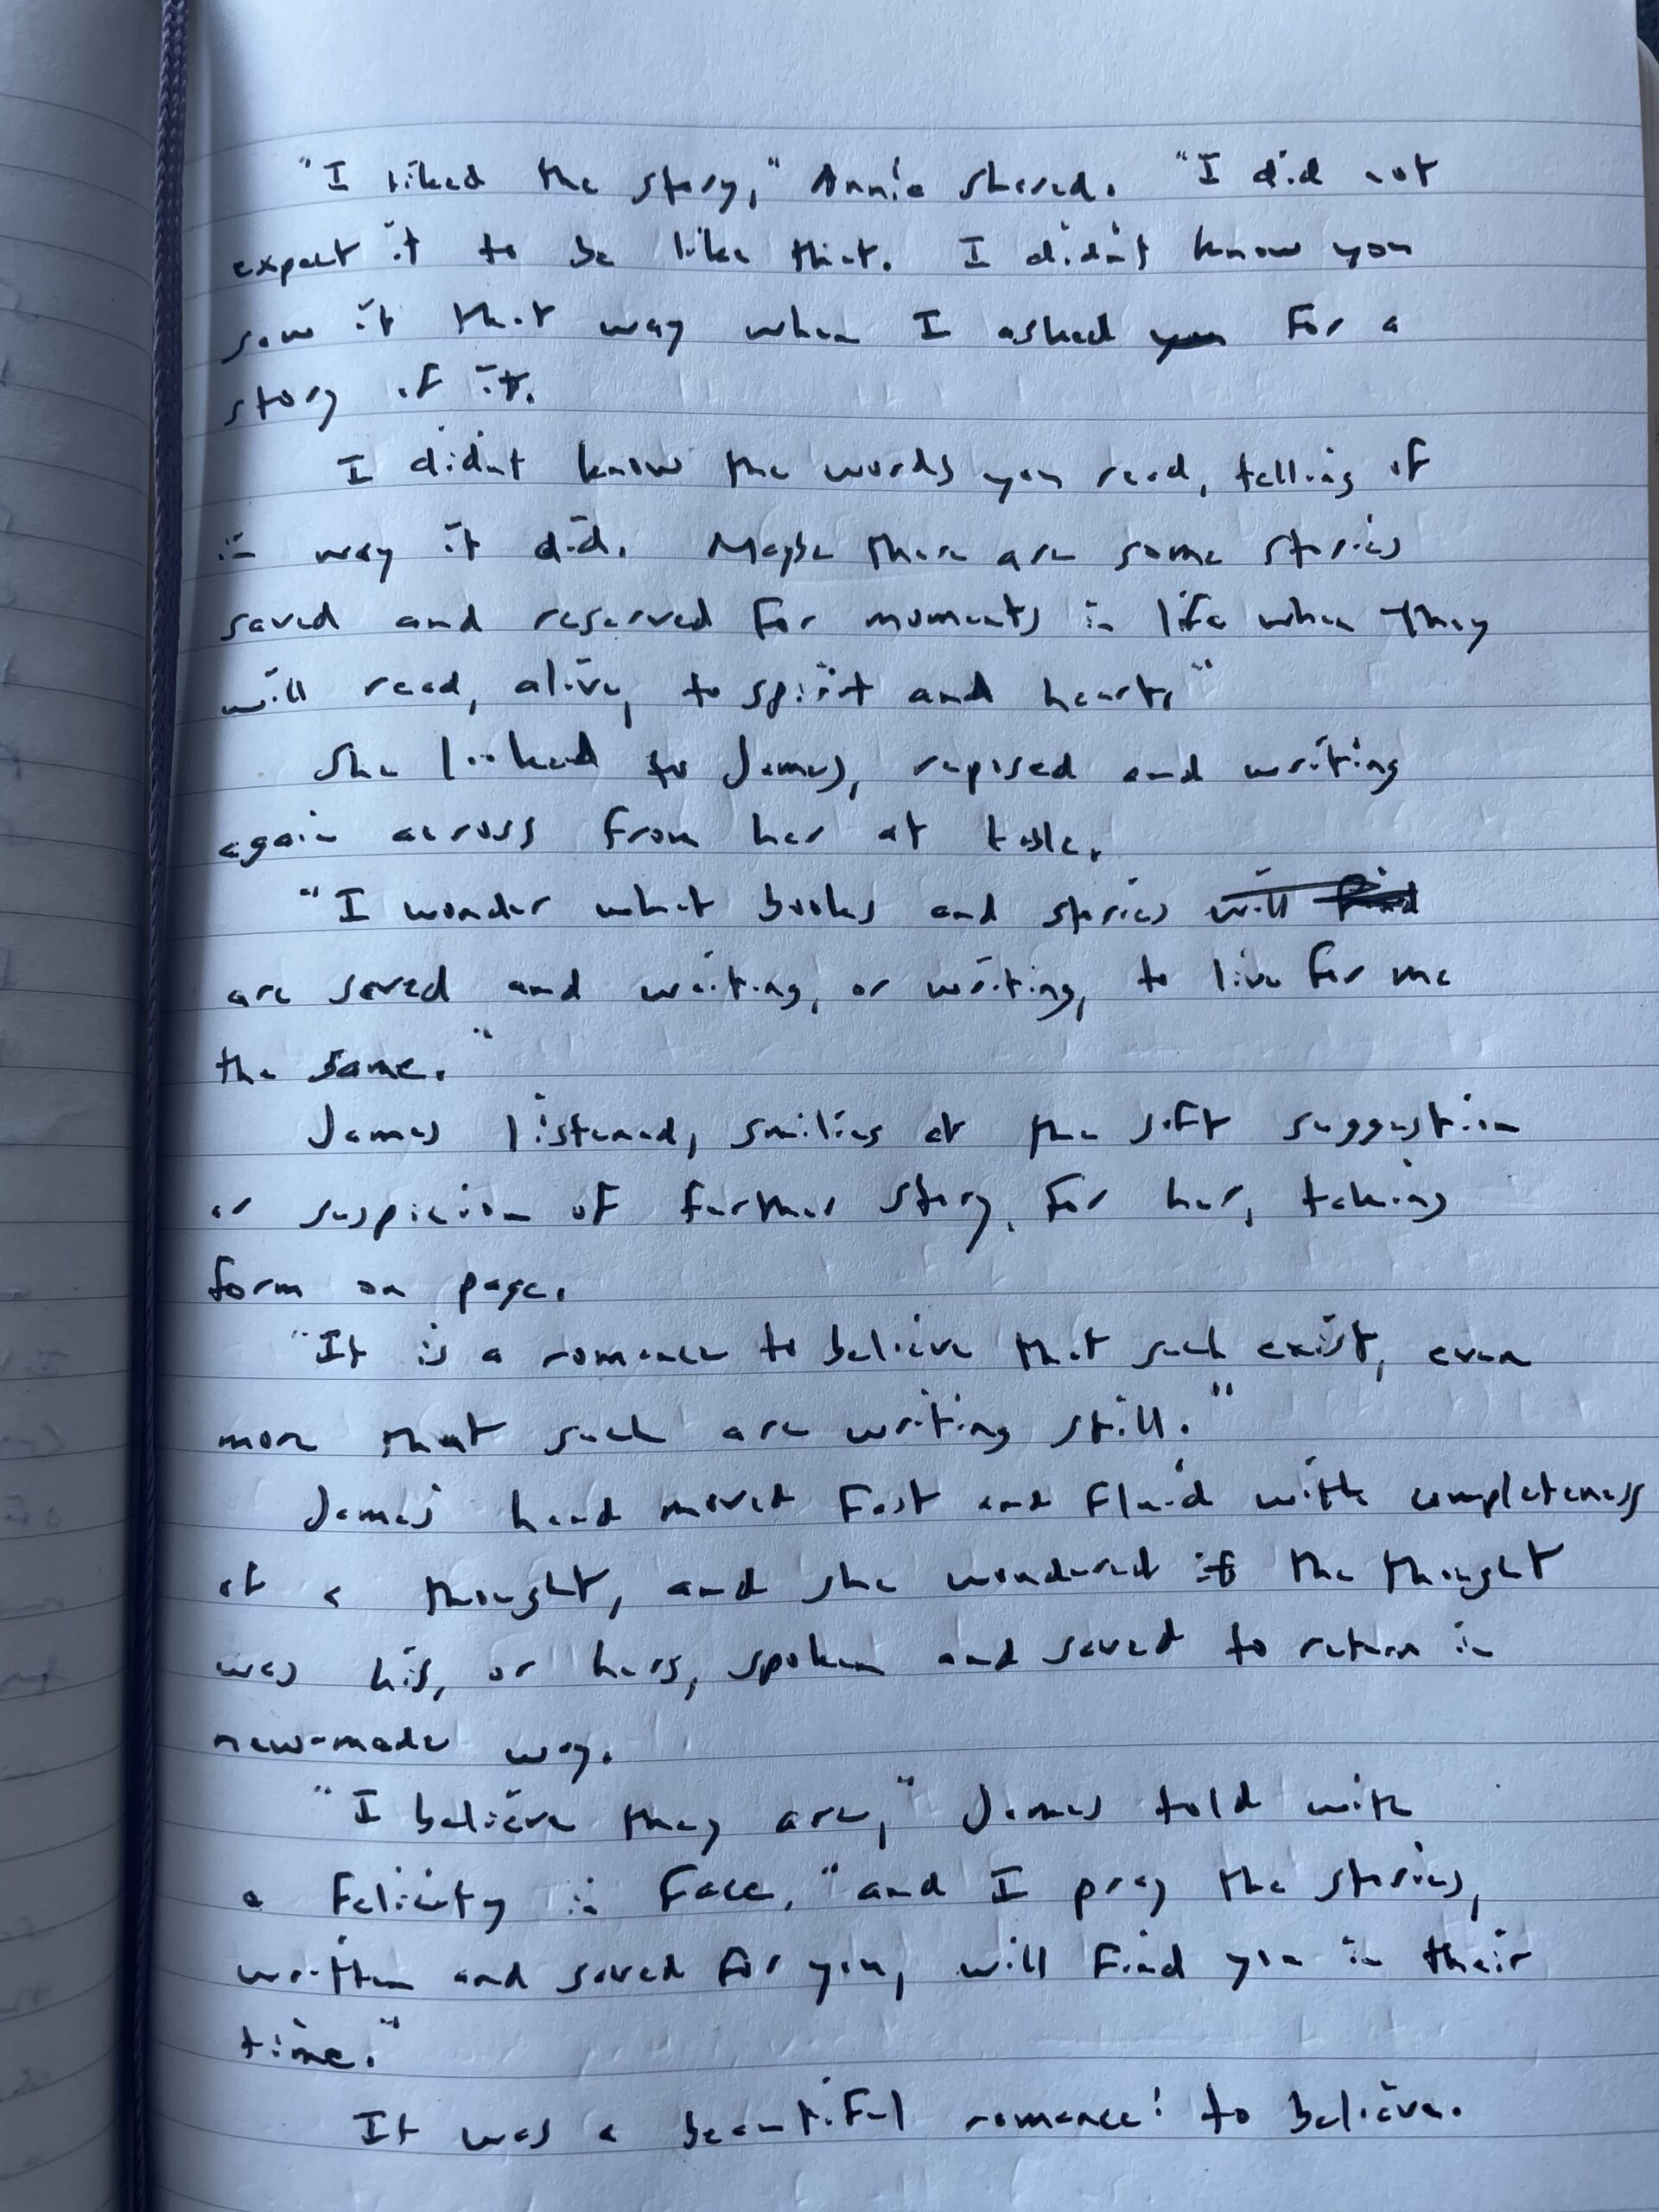 "I liked the story," Annie shared. "I did not
expect it to be like that. I didn't know you
saw it that way when I asked you for a
story of it.
I didnt know the words you read, telling of
in way it did. Maybe there are some stories
saved and reserved for moments in life when they
will read, alive, to spirit and heart."
She looked to James, reposed and writing
again across from her at table.
"I wonder what books and stories will find
are saved and waiting, or writing, to live for me
the same."
James listened, smiling at the soft suggestion
or suspicion of further story, for her, taking
form on page.
"It is a romance to believe that such exist, even
more that such are writing still."
James' hand moved fast and fluid with completeness
of a thought, and she wondered if the thought
was his, or hers, spoken and saved to return in
new-made way.
"I believe they are," James told with
a felicity in face, "and I pray the stories,
written and saved for you, will find you in their
time."
It was a beautiful romance: to believe.